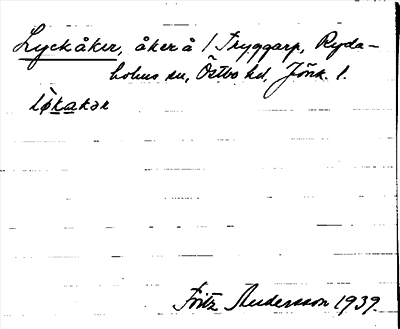 Lyckåker, åker å 1 Tryggarp, Ryda-
holms sn, Östbo hd, Jönk. l.
lø̀kakər
Fritz Andersson 1939.